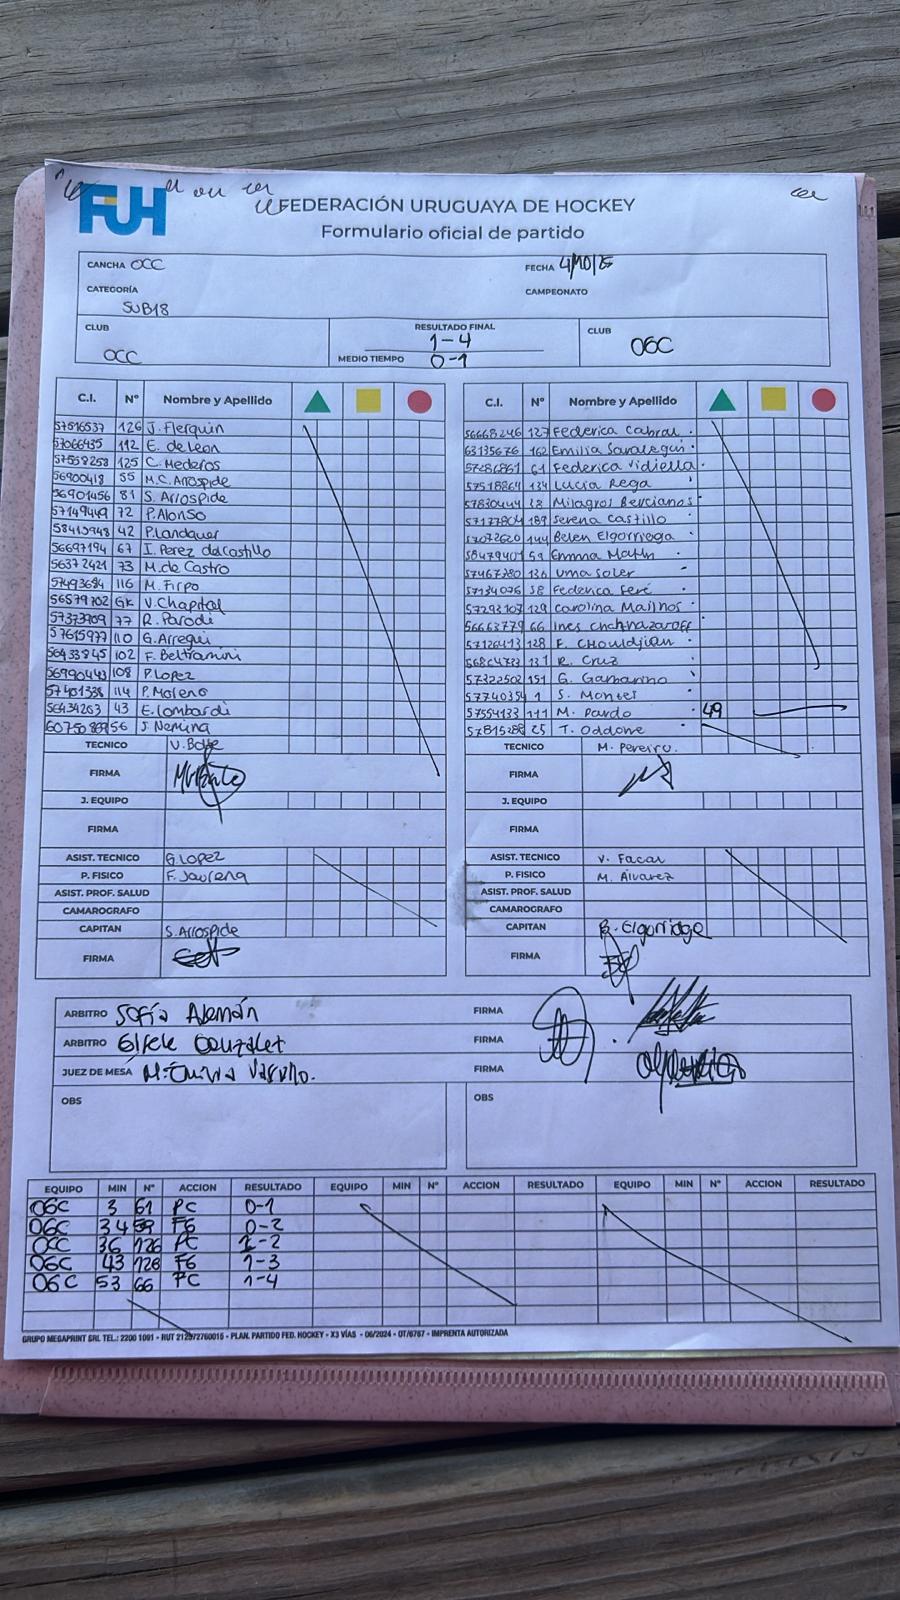 FUH
FEDERACIÓN URUGUAYA DE HOCKEY
Formulario oficial de partido
CANCHA OCC
FECHA 4/10/25
CATEGORÍA SUB18
CAMPEONATO
CLUB OCC
RESULTADO FINAL 1-4
MEDIO TIEMPO 0-1
CLUB OGC
C.I. N° Nombre y Apellido
57516537 126 J. Flerquin
57066435 112 E. de León
57559258 125 C. Mederos
56900418 55 M.C. Arrospide
56901456 81 S. Arrospide
57149449 72 P. Alonso
58413948 42 P. Landauer
56697194 67 I. Perez delcastillo
56372421 73 M. de Castro
57493684 116 M. Firpo
56579702 GK V. Chapital
57373909 77 R. Parodi
57615977 110 G. Arregui
56433845 102 F. Beltramini
56990443 108 P. Lopez
57401338 114 P. Moreno
56434263 43 E. Lombardi
56 J. Nemina
TECNICO
FIRMA
J. EQUIPO
FIRMA
ASIST. TECNICO G. Lopez
P. FISICO F. Jaurena
ASIST. PROF. SALUD
CAMAROGRAFO
CAPITAN S. Arrospide
FIRMA
C.I. N° Nombre y Apellido
56668246 127 Federica Cabral
63135676 162 Emilia
57281861 61 Federica Vidiella
57518864 134 Lucía Rega
57830444 Milagros Bercianos
57177804 189 Serena Castillo
144 Belen Elgorriaga
58479401 59 Emma Martin
57467280 136 Uma Soler
57134096 58 Federica Seré
57293107 129 Carolina Mailhos
56663779 66 Ines
57126413 128 F. Chouldjian
56864733 131 R. Cruz
57322502 151 G. Gamarino
57740354 1 S. Montes
57554133 111 M. Pardo 49
57815288 25 T. Oddone
TECNICO M. Pereiro.
FIRMA
J. EQUIPO
FIRMA
ASIST. TECNICO V. Facal
P. FISICO M. Alvarez
ASIST. PROF. SALUD
CAMAROGRAFO
CAPITAN B. Elgorriaga
FIRMA
ARBITRO Sofía Alemán FIRMA
ARBITRO Gisele Gonzalez FIRMA
JUEZ DE MESA FIRMA
OBS
OBS
EQUIPO MIN N° ACCION RESULTADO EQUIPO MIN N° ACCION RESULTADO EQUIPO MIN N° ACCION RESULTADO
OGC 3 61 PC 0-1
OGC 34 59 FG 0-2
OCC 36 126 PC 1-2
OGC 43 128 FG 1-3
OGC 53 66 PC 1-4
GRUPO MEGAPRINT SRL TEL.: 2200 1091 - RUT 212972760015 - PLAN. PARTIDO FED. HOCKEY - X3 VÍAS - 06/2024 - OT/6767 - IMPRENTA AUTORIZADA